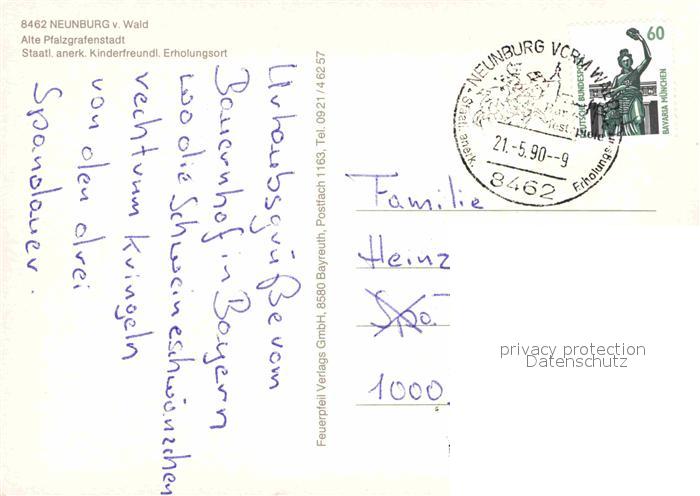 8462 NEUNBURG v. Wald
Alte Pfalzgrafenstadt
Staatl. anerk. Kinderfreundl. Erholungsort
Urlaubsgrüße vom
Bauernhof in Bayern
wo die Schweineschwänzchen
rechtrum kringeln
von den drei
Spandauer.
Feuerpfeil Verlags GmbH, 8580 Bayreuth, Postfach 1163, Tel. 0921/46257
NEUNBURG VORM WALD
Staatl. anerk.
Erholungsort
21.-5.90--9
8462
60
DEUTSCHE BUNDESPOST
BAVARIA MÜNCHEN
Familie
Heinz
Spa
1000
privacy protection
Datenschutz